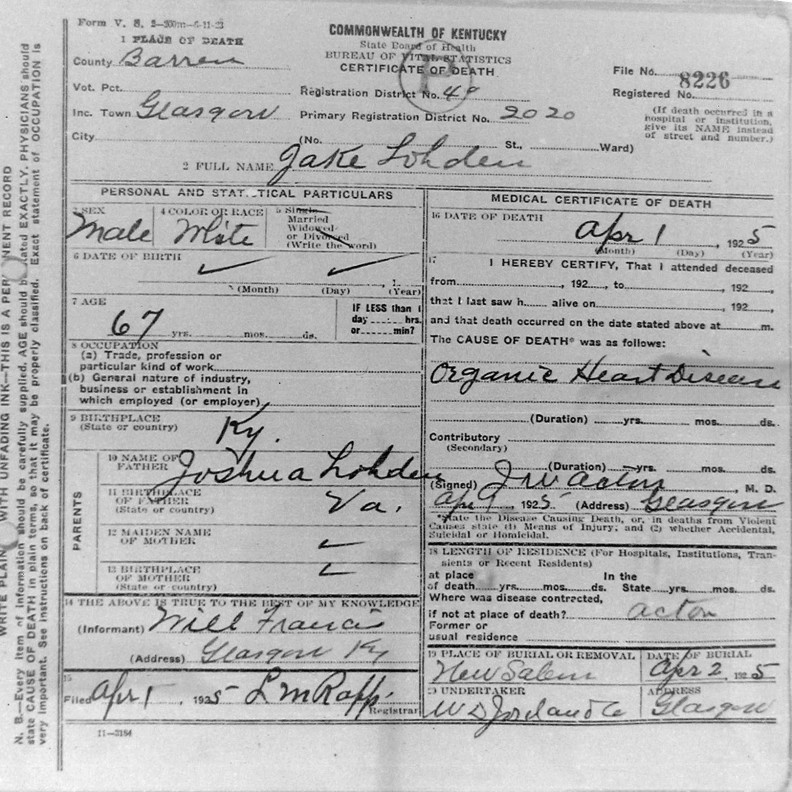 Form V. S. 2—200m—6-11-23
COMMONWEALTH OF KENTUCKY
State Board of Health
BUREAU OF VITAL STATISTICS
CERTIFICATE OF DEATH
1 PLACE OF DEATH
County Barren
File No. 8226
Vot. Pct.
Registration District No. 40
Registered No.
Inc. Town Glasgow
Primary Registration District No. 2020
(If death occurred in a hospital or institution, give its NAME instead of street and number.)
City (No. St., Ward)
2 FULL NAME Jake Lohden
PERSONAL AND STATISTICAL PARTICULARS
3 SEX
Male
4 COLOR OR RACE
White
5 Single
Married
Widowed
or Divorced
(Write the word)
6 DATE OF BIRTH
(Month) (Day) (Year)
7 AGE
67 yrs. mos. ds.
IF LESS than 1
day hrs.
or min?
8 OCCUPATION
(a) Trade, profession or
particular kind of work
(b) General nature of industry,
business or establishment in
which employed (or employer)
9 BIRTHPLACE
(State or country) Ky.
PARENTS
10 NAME OF
FATHER Joshua Lohden
11 BIRTHPLACE
OF FATHER
(State or country) Va.
12 MAIDEN NAME
OF MOTHER
13 BIRTHPLACE
OF MOTHER
(State or country)
14 THE ABOVE IS TRUE TO THE BEST OF MY KNOWLEDGE
(Informant) Will Francis
(Address) Glasgow Ky
15
Filed Apr 1, 1925 L M Rapp
Registrar
11-3184
MEDICAL CERTIFICATE OF DEATH
16 DATE OF DEATH
Apr 1, 1925
(Month) (Day) (Year)
17 I HEREBY CERTIFY, That I attended deceased
from , 192 , to , 192
that I last saw h alive on , 192
and that death occurred on the date stated above at m.
The CAUSE OF DEATH* was as follows:
Organic Heart Disease
(Duration) yrs. mos. ds.
Contributory
(Secondary)
(Duration) yrs. mos. ds.
(Signed) J W Acton, M. D.
Apr 1 1925 (Address) Glasgow
*State the Disease Causing Death, or, in deaths from Violent
Causes state (1) Means of Injury, and (2) whether Accidental,
Suicidal or Homicidal.
18 LENGTH OF RESIDENCE (For Hospitals, Institutions, Tran-
sients or Recent Residents)
at place In the
of death yrs. mos. ds. State yrs. mos. ds.
Where was disease contrected,
if not at place of death? acton
Former or
usual residence
19 PLACE OF BURIAL OR REMOVAL
New Salem
DATE OF BURIAL
Apr 2, 1925
20 UNDERTAKER
ADDRESS
Glasgow
N. B.—Every item of information should be carefully supplied. AGE should be stated EXACTLY. PHYSICIANS should
state CAUSE OF DEATH in plain terms, so that it may be properly classified. Exact statement of OCCUPATION is
very important. See instructions on back of certificate.